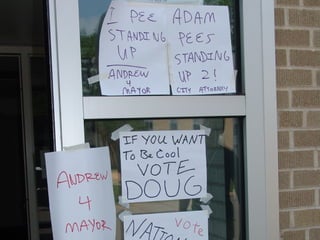 I PEE
STANDING
UP
ANDREW
4
MAYOR
ADAM
PEES
STANDING
UP 2!
CITY ATTORNEY
IF YOU WANT
To Be Cool
VOTE
DOUG
ANDREW
4
MAYOR
Vote